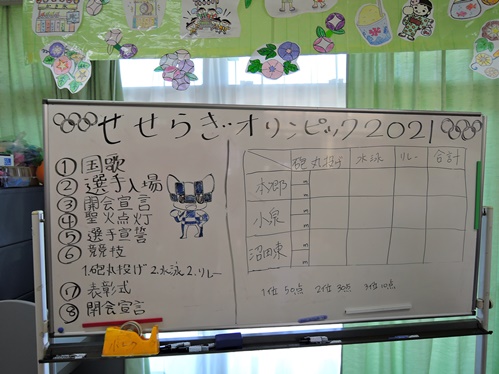 せせらぎオリンピック2021
①国歌
②選手入場
③開会宣言
④聖火点灯
⑤選手宣誓
⑥競技
1.砲丸投げ 2.水泳 2.リレー
⑦表彰式
⑧閉会宣言
砲丸投げ 水泳 リレー 合計
本郷
小泉
沼田東
1位 50点 2位 30点 3位 10点